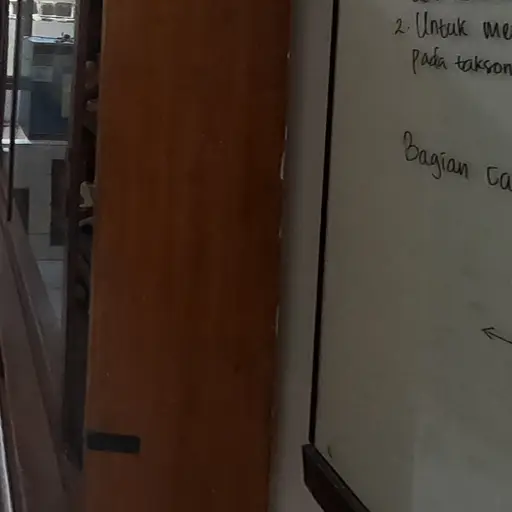 2. Untuk
pada takson
Bagian